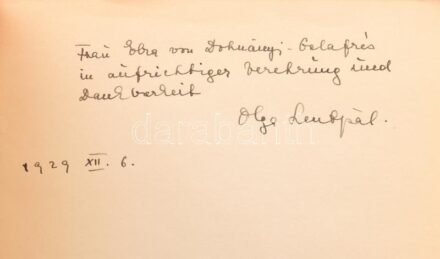 Frau Elza von Dohnányi-Galafrés
in aufrichtiger Verehrung und
Dankbarkeit
Olga Szentpál.
1929 XII. 6.
darabanth